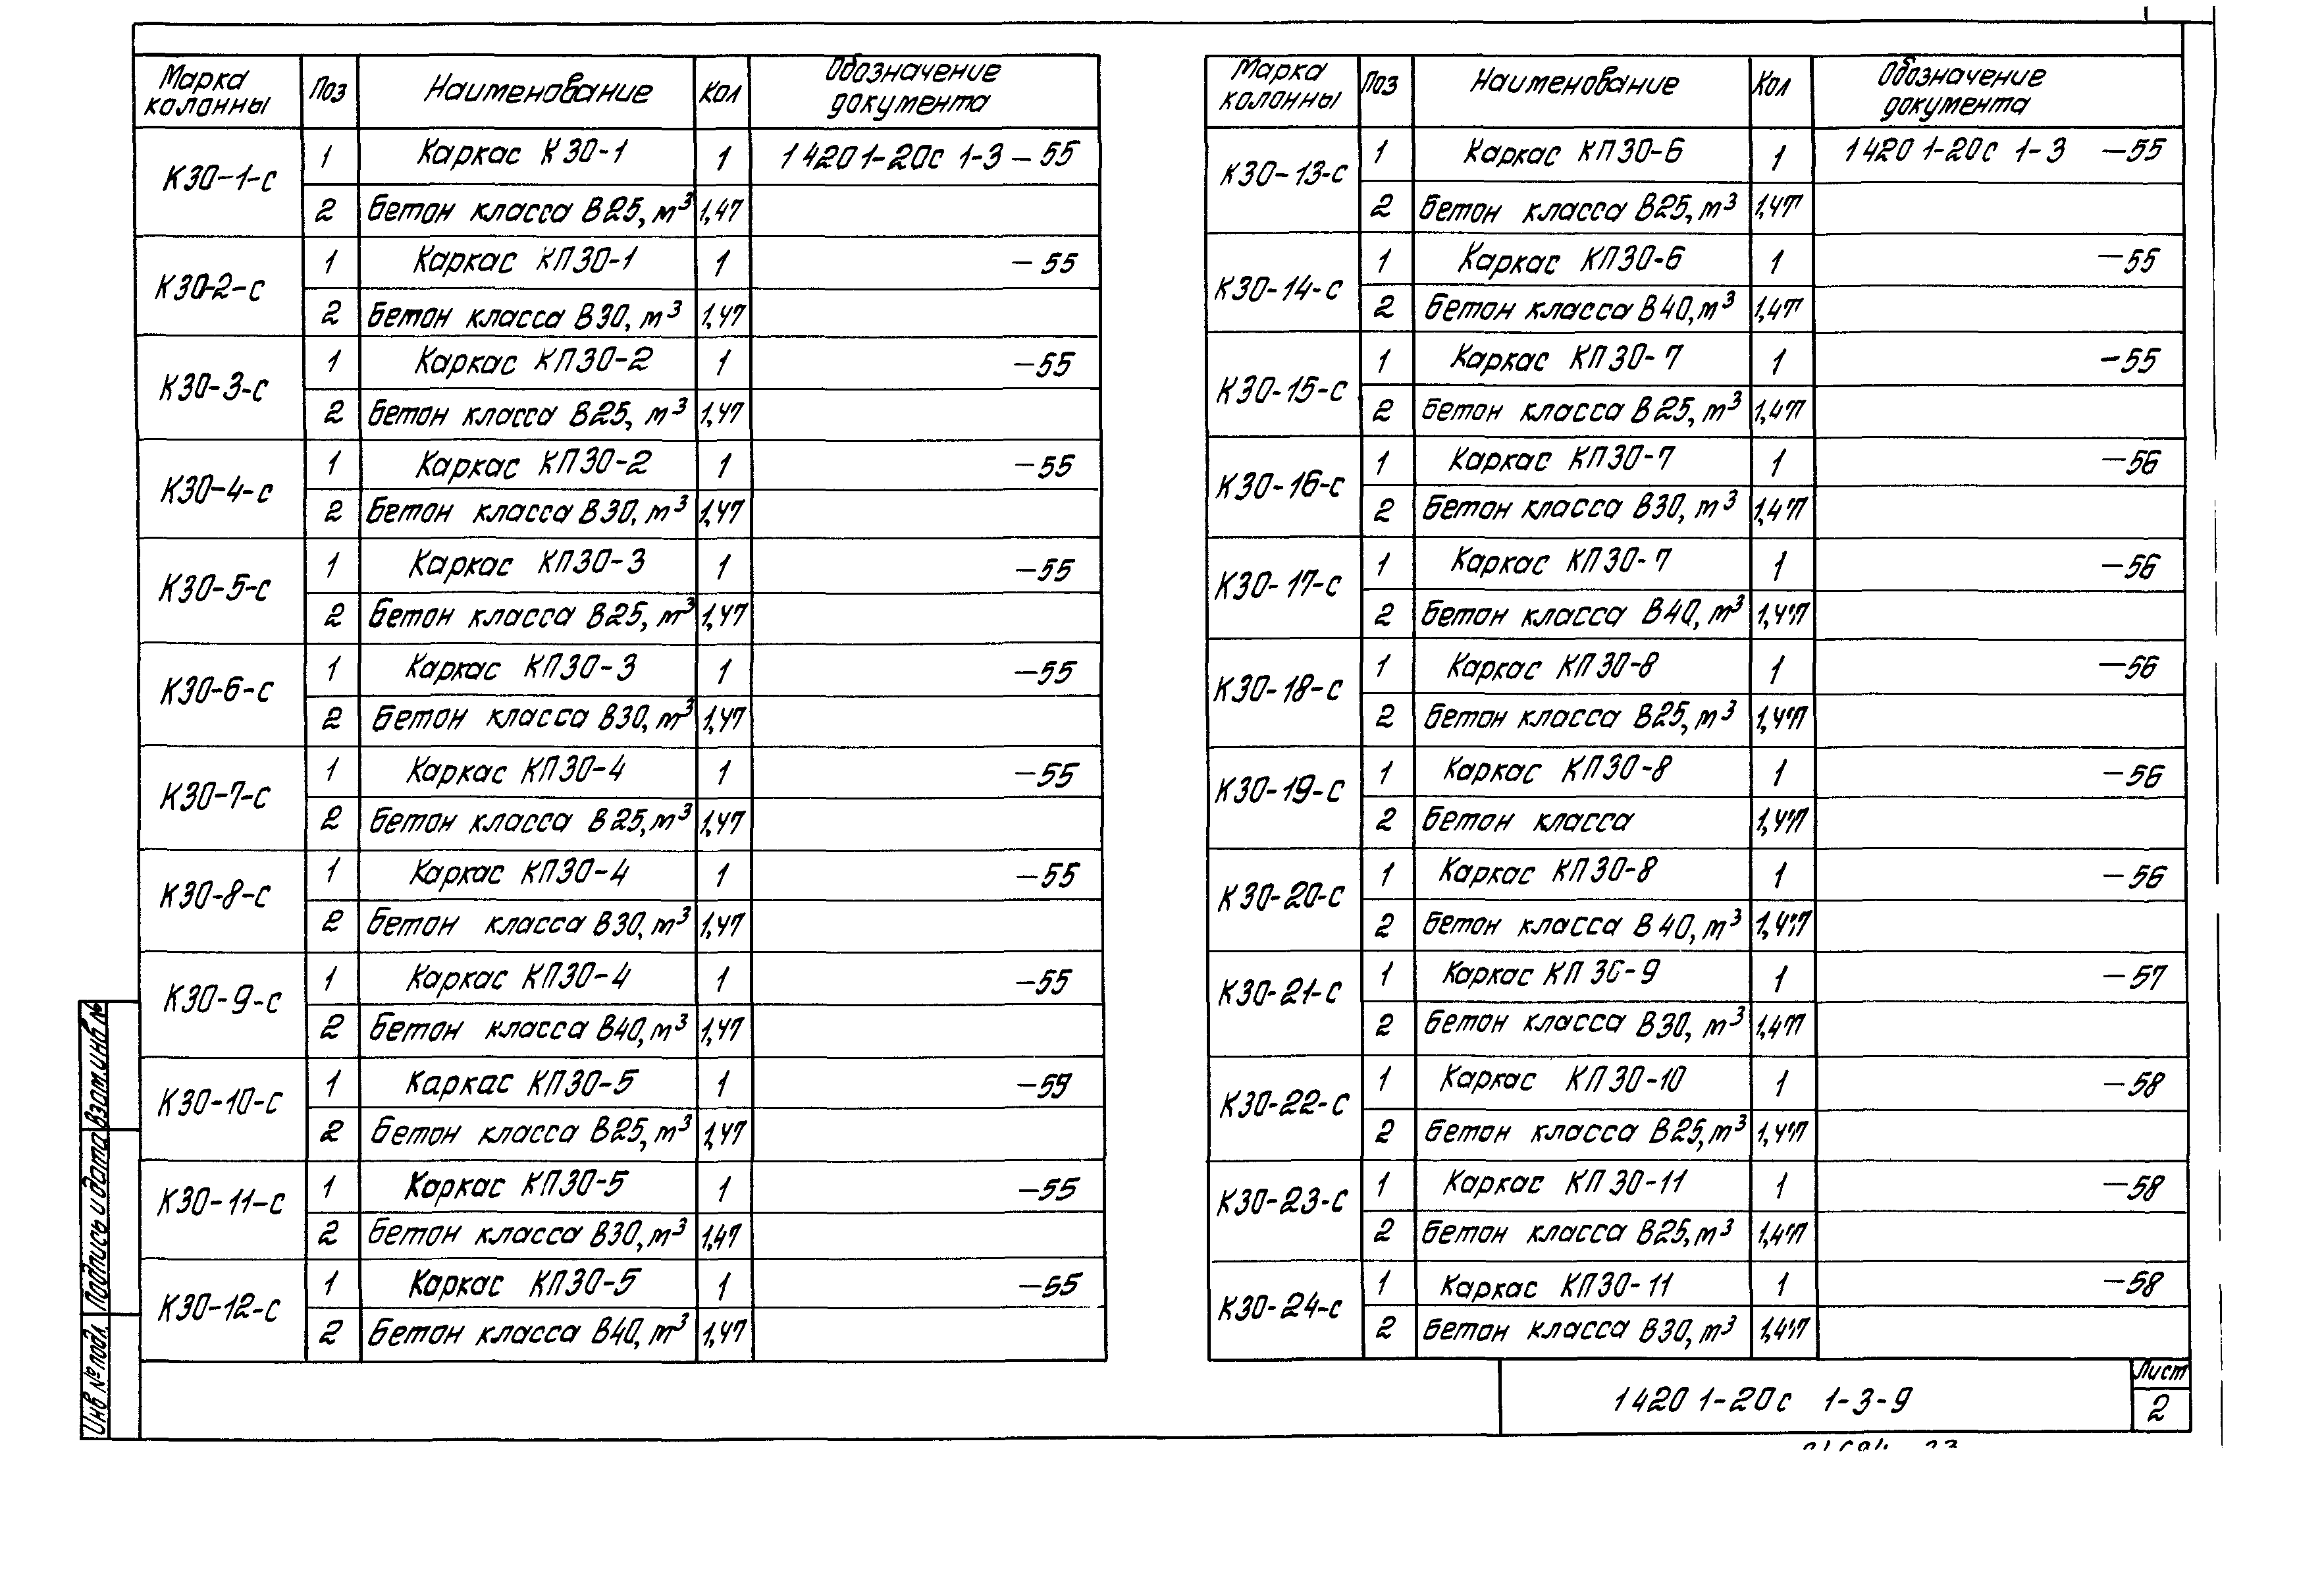 Марка колонны Поз Наименование Кол Обозначение документа
К30-1-с 1 Каркас К30-1 1 1 420 1-20с 1-3 -55
2 Бетон класса В25, м³ 1,47
К30-2-с 1 Каркас КП30-1 1 -55
2 Бетон класса В30, м³ 1,47
К30-3-с 1 Каркас КП30-2 1 -55
2 Бетон класса В25, м³ 1,47
К30-4-с 1 Каркас КП30-2 1 -55
2 Бетон класса В30, м³ 1,47
К30-5-с 1 Каркас КП30-3 1 -55
2 Бетон класса В25, м³ 1,47
К30-6-с 1 Каркас КП30-3 1 -55
2 Бетон класса В30, м³ 1,47
К30-7-с 1 Каркас КП30-4 1 -55
2 Бетон класса В25, м³ 1,47
К30-8-с 1 Каркас КП30-4 1 -55
2 Бетон класса В30, м³ 1,47
К30-9-с 1 Каркас КП30-4 1 -55
2 Бетон класса В40, м³ 1,47
К30-10-с 1 Каркас КП30-5 1 -59
2 Бетон класса В25, м³ 1,47
К30-11-с 1 Каркас КП30-5 1 -55
2 Бетон класса В30, м³ 1,47
К30-12-с 1 Каркас КП30-5 1 -55
2 Бетон класса В40, м³ 1,47
Марка колонны Поз Наименование Кол Обозначение документа
К30-13-с 1 Каркас КП30-6 1 1 420 1-20с 1-3 -55
2 Бетон класса В25, м³ 1,47
К30-14-с 1 Каркас КП30-6 1 -55
2 Бетон класса В40, м³ 1,47
К30-15-с 1 Каркас КП30-7 1 -55
2 Бетон класса В25, м³ 1,47
К30-16-с 1 Каркас КП30-7 1 -56
2 Бетон класса В30, м³ 1,47
К30-17-с 1 Каркас КП30-7 1 -56
2 Бетон класса В40, м³ 1,47
К30-18-с 1 Каркас КП30-8 1 -56
2 Бетон класса В25, м³ 1,47
К30-19-с 1 Каркас КП30-8 1 -56
2 Бетон класса 1,47
К30-20-с 1 Каркас КП30-8 1 -56
2 Бетон класса В40, м³ 1,47
К30-21-с 1 Каркас КП30-9 1 -57
2 Бетон класса В30, м³ 1,47
К30-22-с 1 Каркас КП30-10 1 -58
2 Бетон класса В25, м³ 1,47
К30-23-с 1 Каркас КП30-11 1 -58
2 Бетон класса В25, м³ 1,47
К30-24-с 1 Каркас КП30-11 1 -58
2 Бетон класса В30, м³ 1,47
Инв № подл Подпись и дата Взам.инв №
1 420 1-20с 1-3-9
Лист
2